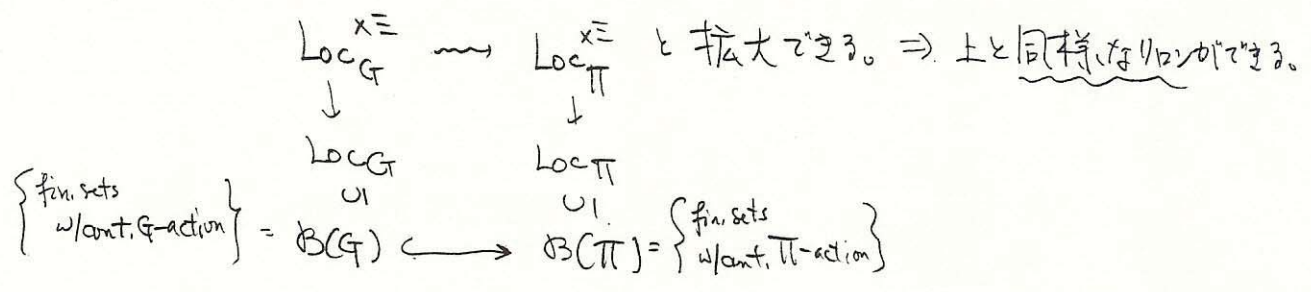 Loc_G^{×Ξ} ⇝ Loc_Π^{×Ξ} と拡大できる。⇒ 上と同様なリロンができる。
↓ ↓
Loc_G Loc_Π
∪| ∪|
{fin. sets w/cont. G-action} = B(G) ↪ B(Π) = {fin. sets w/cont. Π-action}